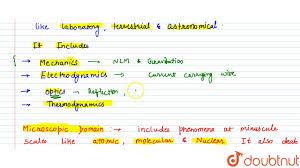 like laboratory, terrestrial & astronomical.
It Includes
→ Mechanics → NLM & Gravitation
→ Electrodynamics → Current carrying wire
→ Optics → Reflection,
→ Thermodynamics
Microscopic Domain → includes phenomena at minuscule
scales like atomic, molecular & Nuclear. It also deal
doubtnut